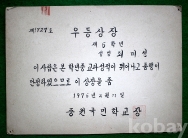 제1727호
우등상장
제6학년
성명 최미영
이 사람은 본 학년중 교과성적이 뛰어나고 품행이
단정하였으므로 이 상장을 줌
197 년 2월 17일
중원국민학교장
kobay